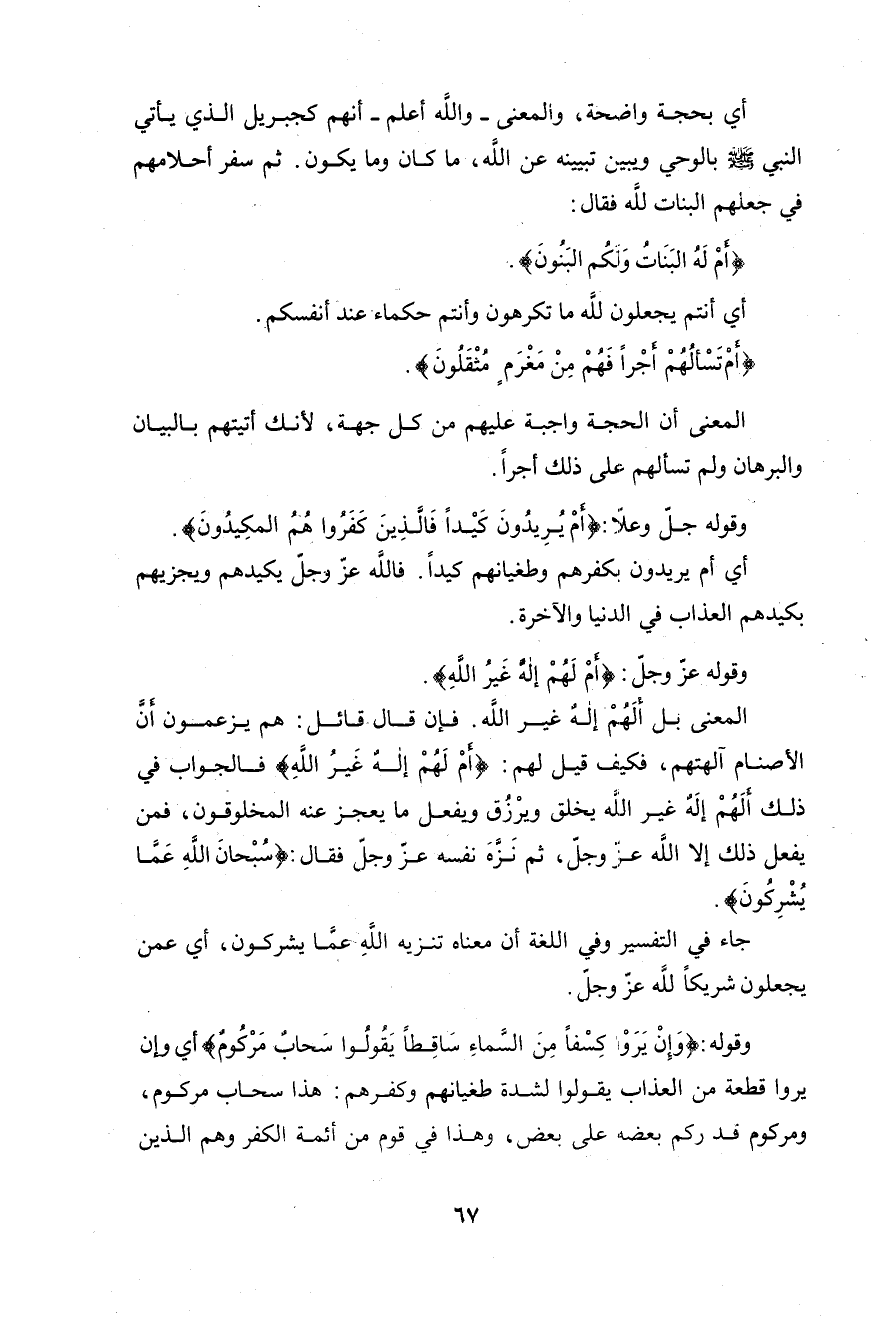 أي بحجة واضحة، والمعنى - واللَّه أعلم - أنهم كجبريل الذي يأتي
النبي ﷺ بالوحي ويبين تبيينه عن اللَّه، ما كان وما يكون. ثم سفر أحلامهم
في جعلهم البنات للَّه فقال:
﴿أَمْ لَهُ البَنَاتُ وَلَكُم البَنُونَ﴾.
أي أنتم يجعلون للَّه ما تكرهون وأنتم حكماء عند أنفسكم.
﴿أَمْ تَسْألُهُمْ أَجْراً فَهُمْ مِنْ مَغْرَمٍ مُثْقَلُونَ﴾.
المعنى أن الحجة واجبة عليهم من كل جهة، لأنك أتيتهم بالبيان
والبرهان ولم تسألهم على ذلك أجراً.
وقوله جلّ وعلّا: ﴿أَمْ يُرِيدُونَ كَيْداً فَالَّذِينَ كَفَرُوا هُمُ المَكِيدُونَ﴾.
أي أم يريدون بكفرهم وطغيانهم كيداً. فاللَّه عزّ وجلّ يكيدهم ويجزيهم
بكيدهم العذاب في الدنيا والآخرة.
وقوله عزّ وجلّ: ﴿أَمْ لَهُمْ إِلٰهٌ غَيرُ اللَّهِ﴾.
المعنى بل أَلَهُمْ إِلٰهٌ غير اللَّه. فإن قال قائل: هم يزعمون أنَّ
الأصنام آلهتهم، فكيف قيل لهم: ﴿أَمْ لَهُمْ إلٰهٌ غَيرُ اللَّهِ﴾ فالجواب في
ذلك أَلَهُمْ إِلَهٌ غير اللَّه يخلق ويرْزُق ويفعل ما يعجز عنه المخلوقون، فمن
يفعل ذلك إلا اللَّه عزّ وجلّ، ثم نَزَّهَ نفسه عزّ وجلّ فقال: ﴿سُبْحانَ اللَّهِ عَمَّا
يُشْرِكُونَ﴾.
جاء في التفسير وفي اللغة أن معناه تنزيه اللَّهِ عمَّا يشركون، أي عمن
يجعلون شريكاً للَّه عزّ وجلّ.
وقوله: ﴿وَإِنْ يَرَوْا كِسْفاً مِنَ السَّماءِ سَاقِطاً يَقُولُوا سَحابٌ مَرْكُومٌ﴾ أي وإن
يروا قطعة من العذاب يقولوا لشدة طغيانهم وكفرهم: هذا سحاب مركوم،
ومركوم قد ركم بعضه على بعض، وهذا في قوم من أئمة الكفر وهم الذين
٦٧